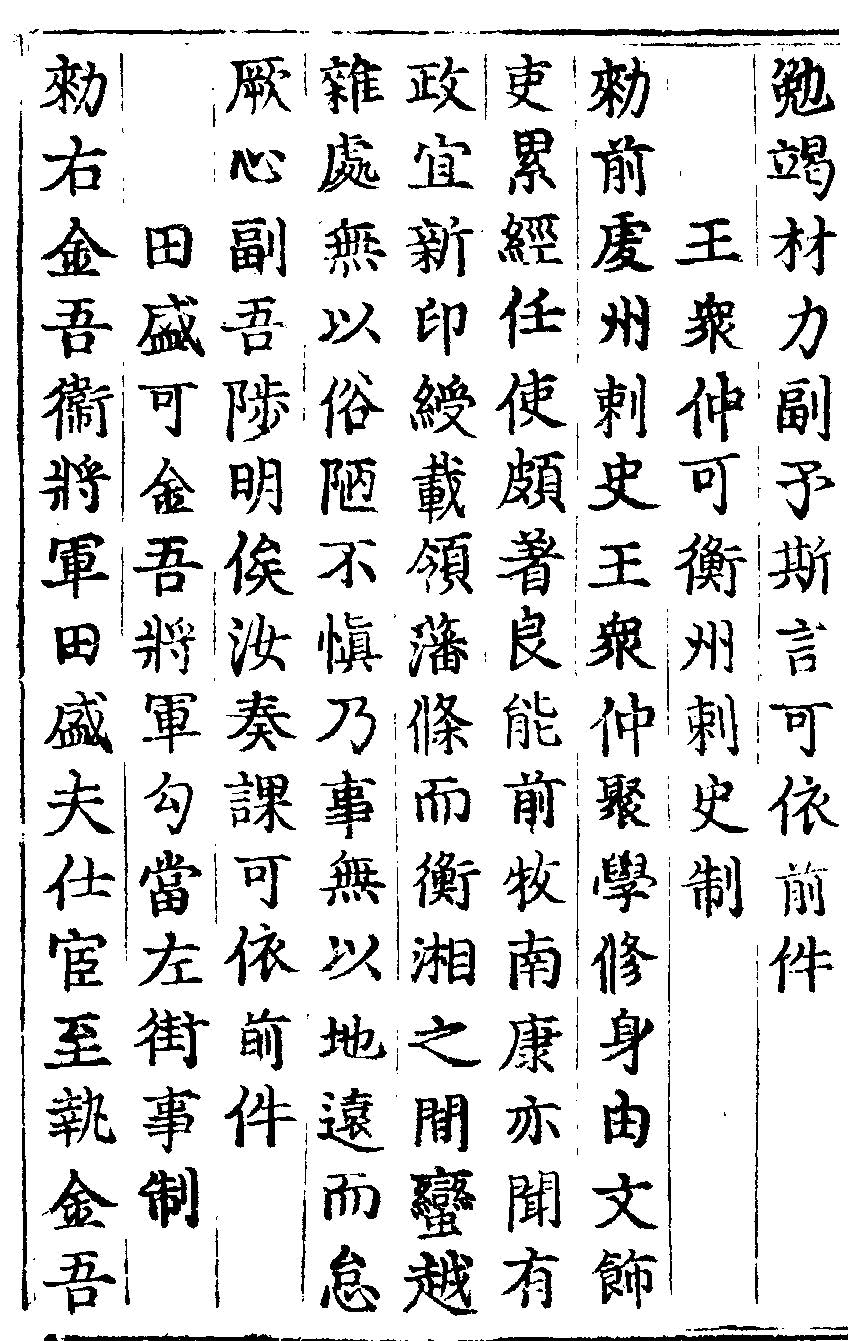 勉竭材力副予斯言可依前件
王衆仲可衡州刺史制
勑前虔州刺史王衆仲聚學修身由文飾
吏累經任使頗著良能前牧南康亦聞有
政宜新印綬載領藩條而衡湘之間蠻越
雜處無以俗陋不愼乃事無以地遠而怠
厥心副吾陟明俟汝奏課可依前件
田盛可金吾將軍勾當左街事制
勑右金吾衞將軍田盛夫仕宦至執金吾